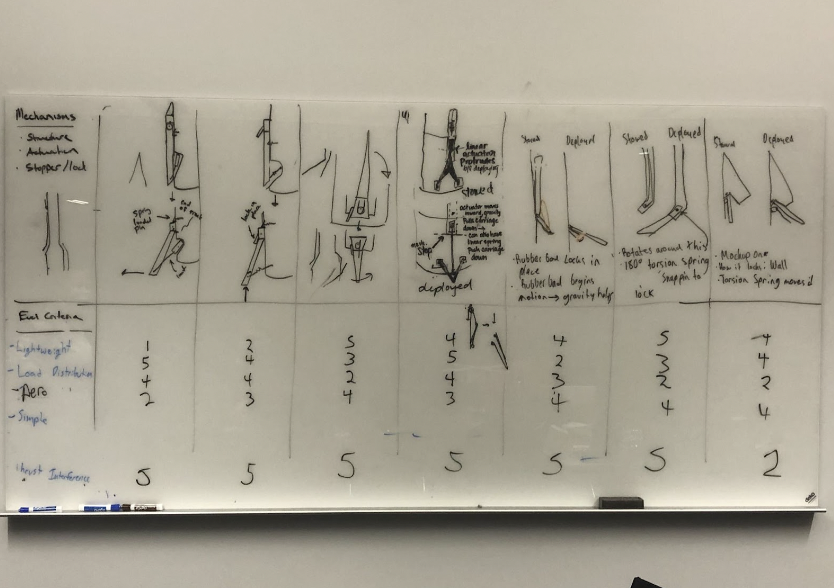 Mechanisms
· Structure
· Actuation
· Stopper/lock
spring
loaded
pin
4)
linear
actuators
Protrudes
stowed
actuator moves
inward, gravity
push carriage
down →
can also have
linear spring
push carriage
down
mech.
Stop
deployed
Stowed
Deployed
· Rubber band Locks in
place
· Rubber band begins
motion → gravity helps
Stowed
Deployed
· Rotates around this
· 180° torsion spring
Snap pin to
lock
Stowed
Deployed
· Mockup one
· How it locks: Wall
· Torsion Spring moves it
Eval Criteria
- Lightweight 1 2 5 4 4 5 4
- Load Distribution 5 4 3 5 2 3 4
- Aero 4 4 2 4 3 2 2
- Simple 2 3 4 3 4 4 4
Thrust Interference 5 5 5 5 5 5 2